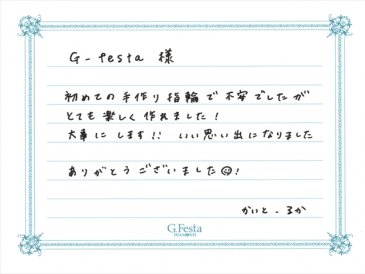 G-festa 様
初めての手作り指輪で不安でしたが
とても楽しく作れました！
大事にします!! いい思い出になりました
ありがとうございました☺!
かいと - るか
G.Festa
DIAMOND